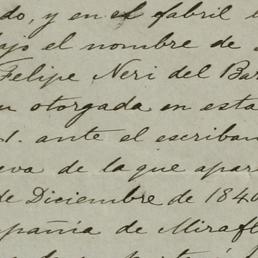 do, y en el fabril
ajo el nombre de
Felipe Neri del Bar
otorgada en esta
1. ante el escriban
eva de la que apar
de Diciembre de 184
pañia de Mirafl